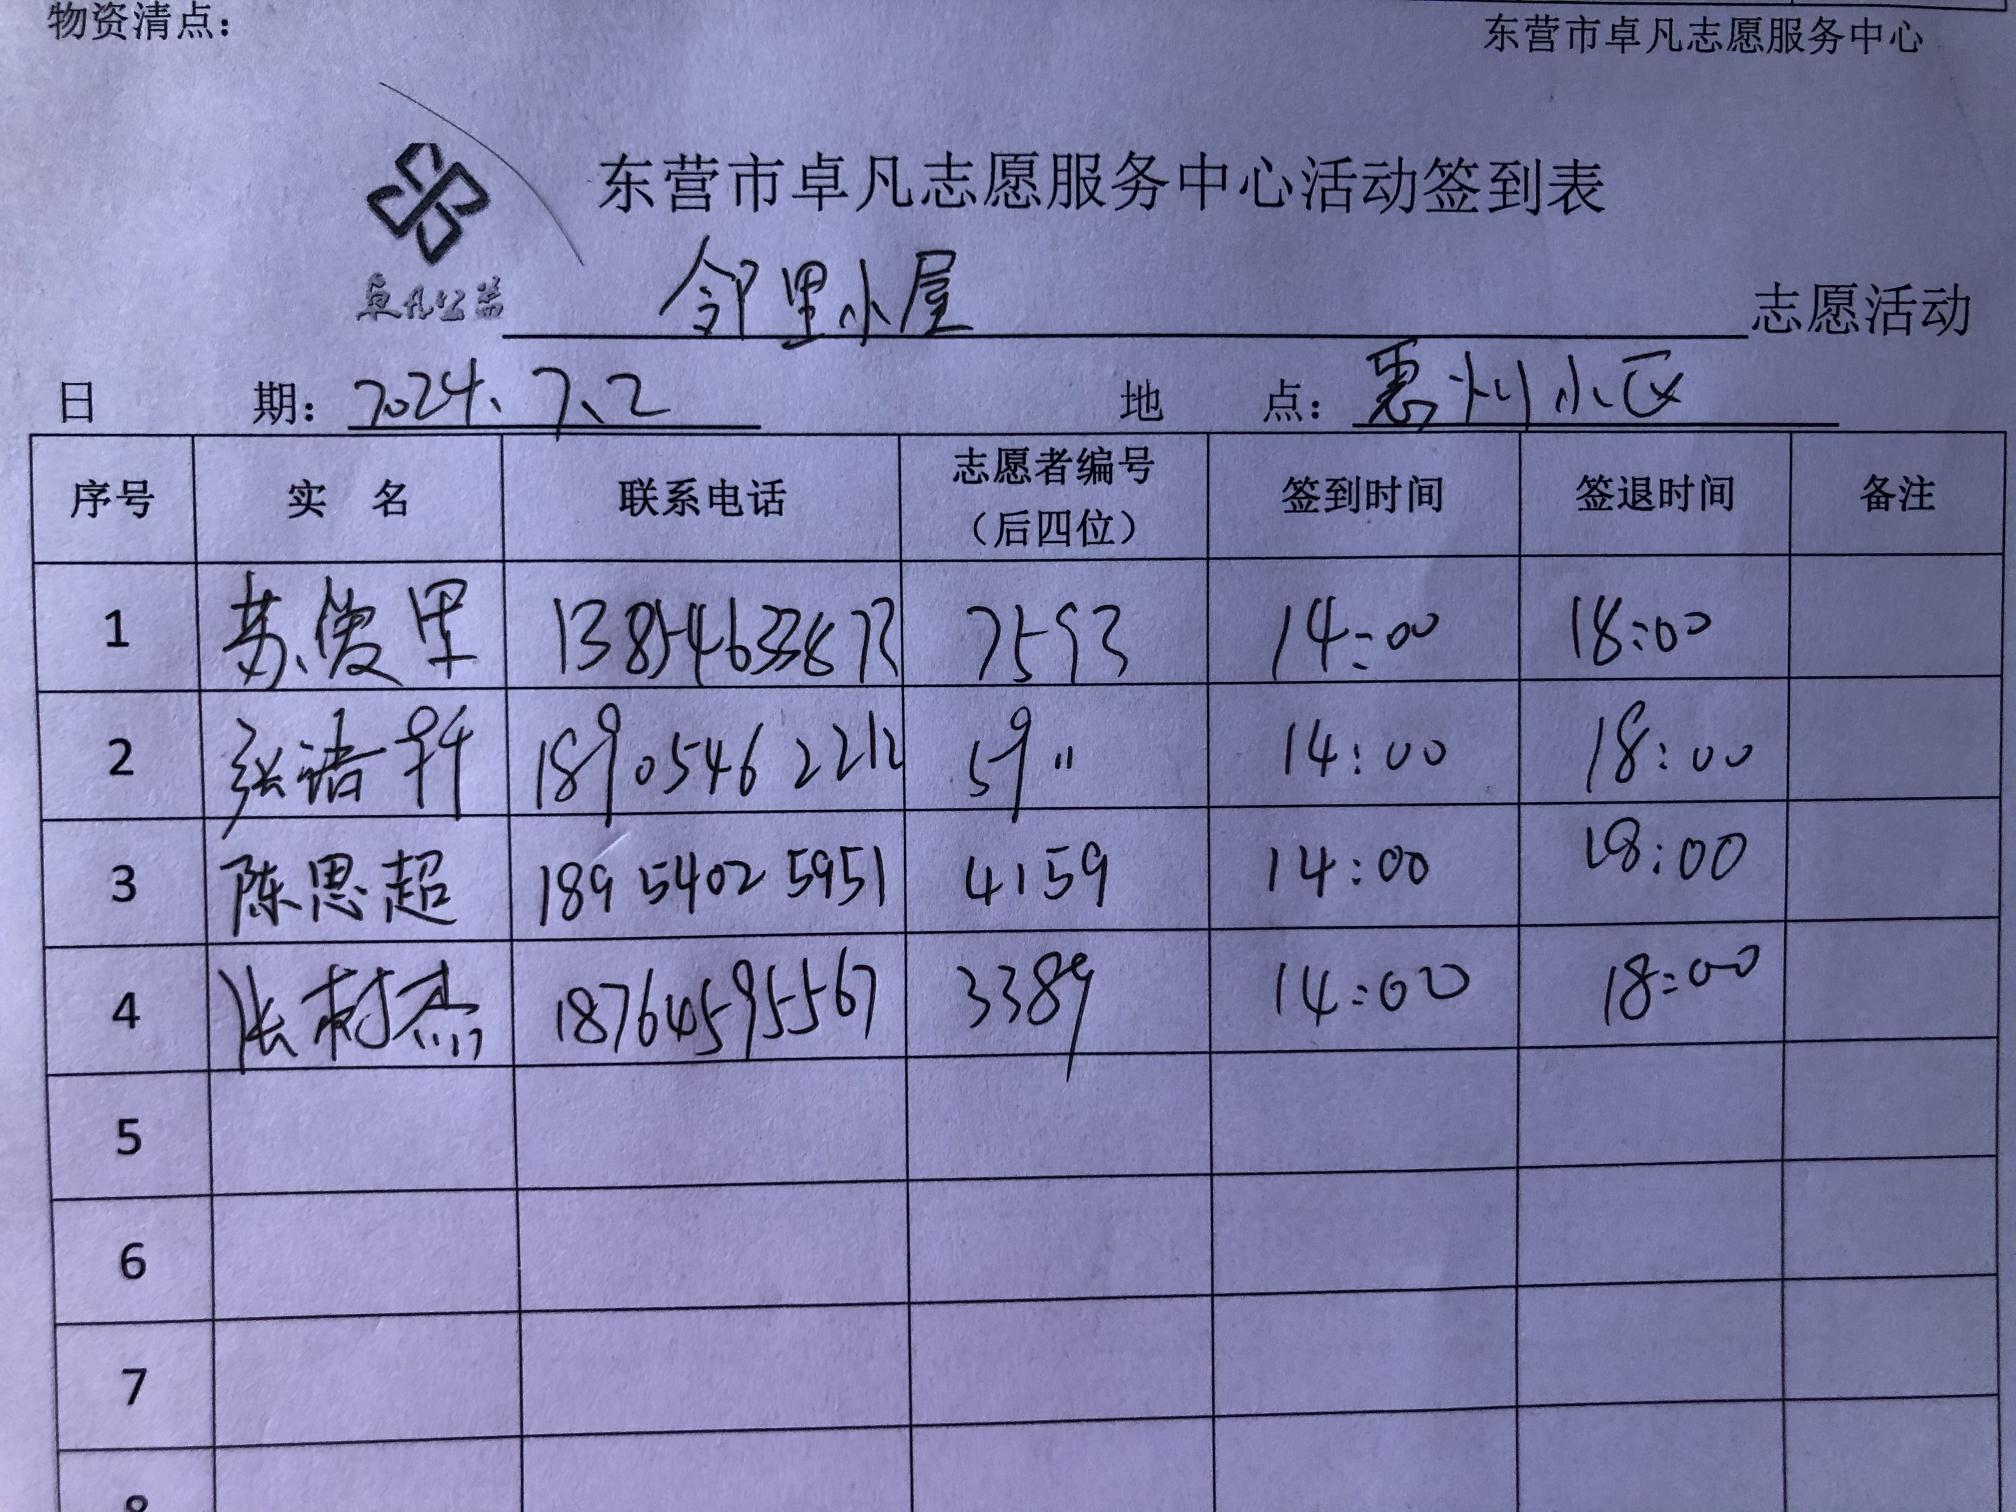 物资清点：
东营市卓凡志愿服务中心
东营市卓凡志愿服务中心活动签到表
卓凡公益
邻里小屋 志愿活动
日 期：2024、7、2 地 点：惠州小区
序号 实 名 联系电话 志愿者编号（后四位） 签到时间 签退时间 备注
1 苏俊里 13854633873 7593 14:00 18:00
2 张诸轩 18905462212 5911 14:00 18:00
3 陈思超 18954025951 4159 14:00 18:00
4 张树杰 18764595567 3389 14:00 18:00
5
6
7
8